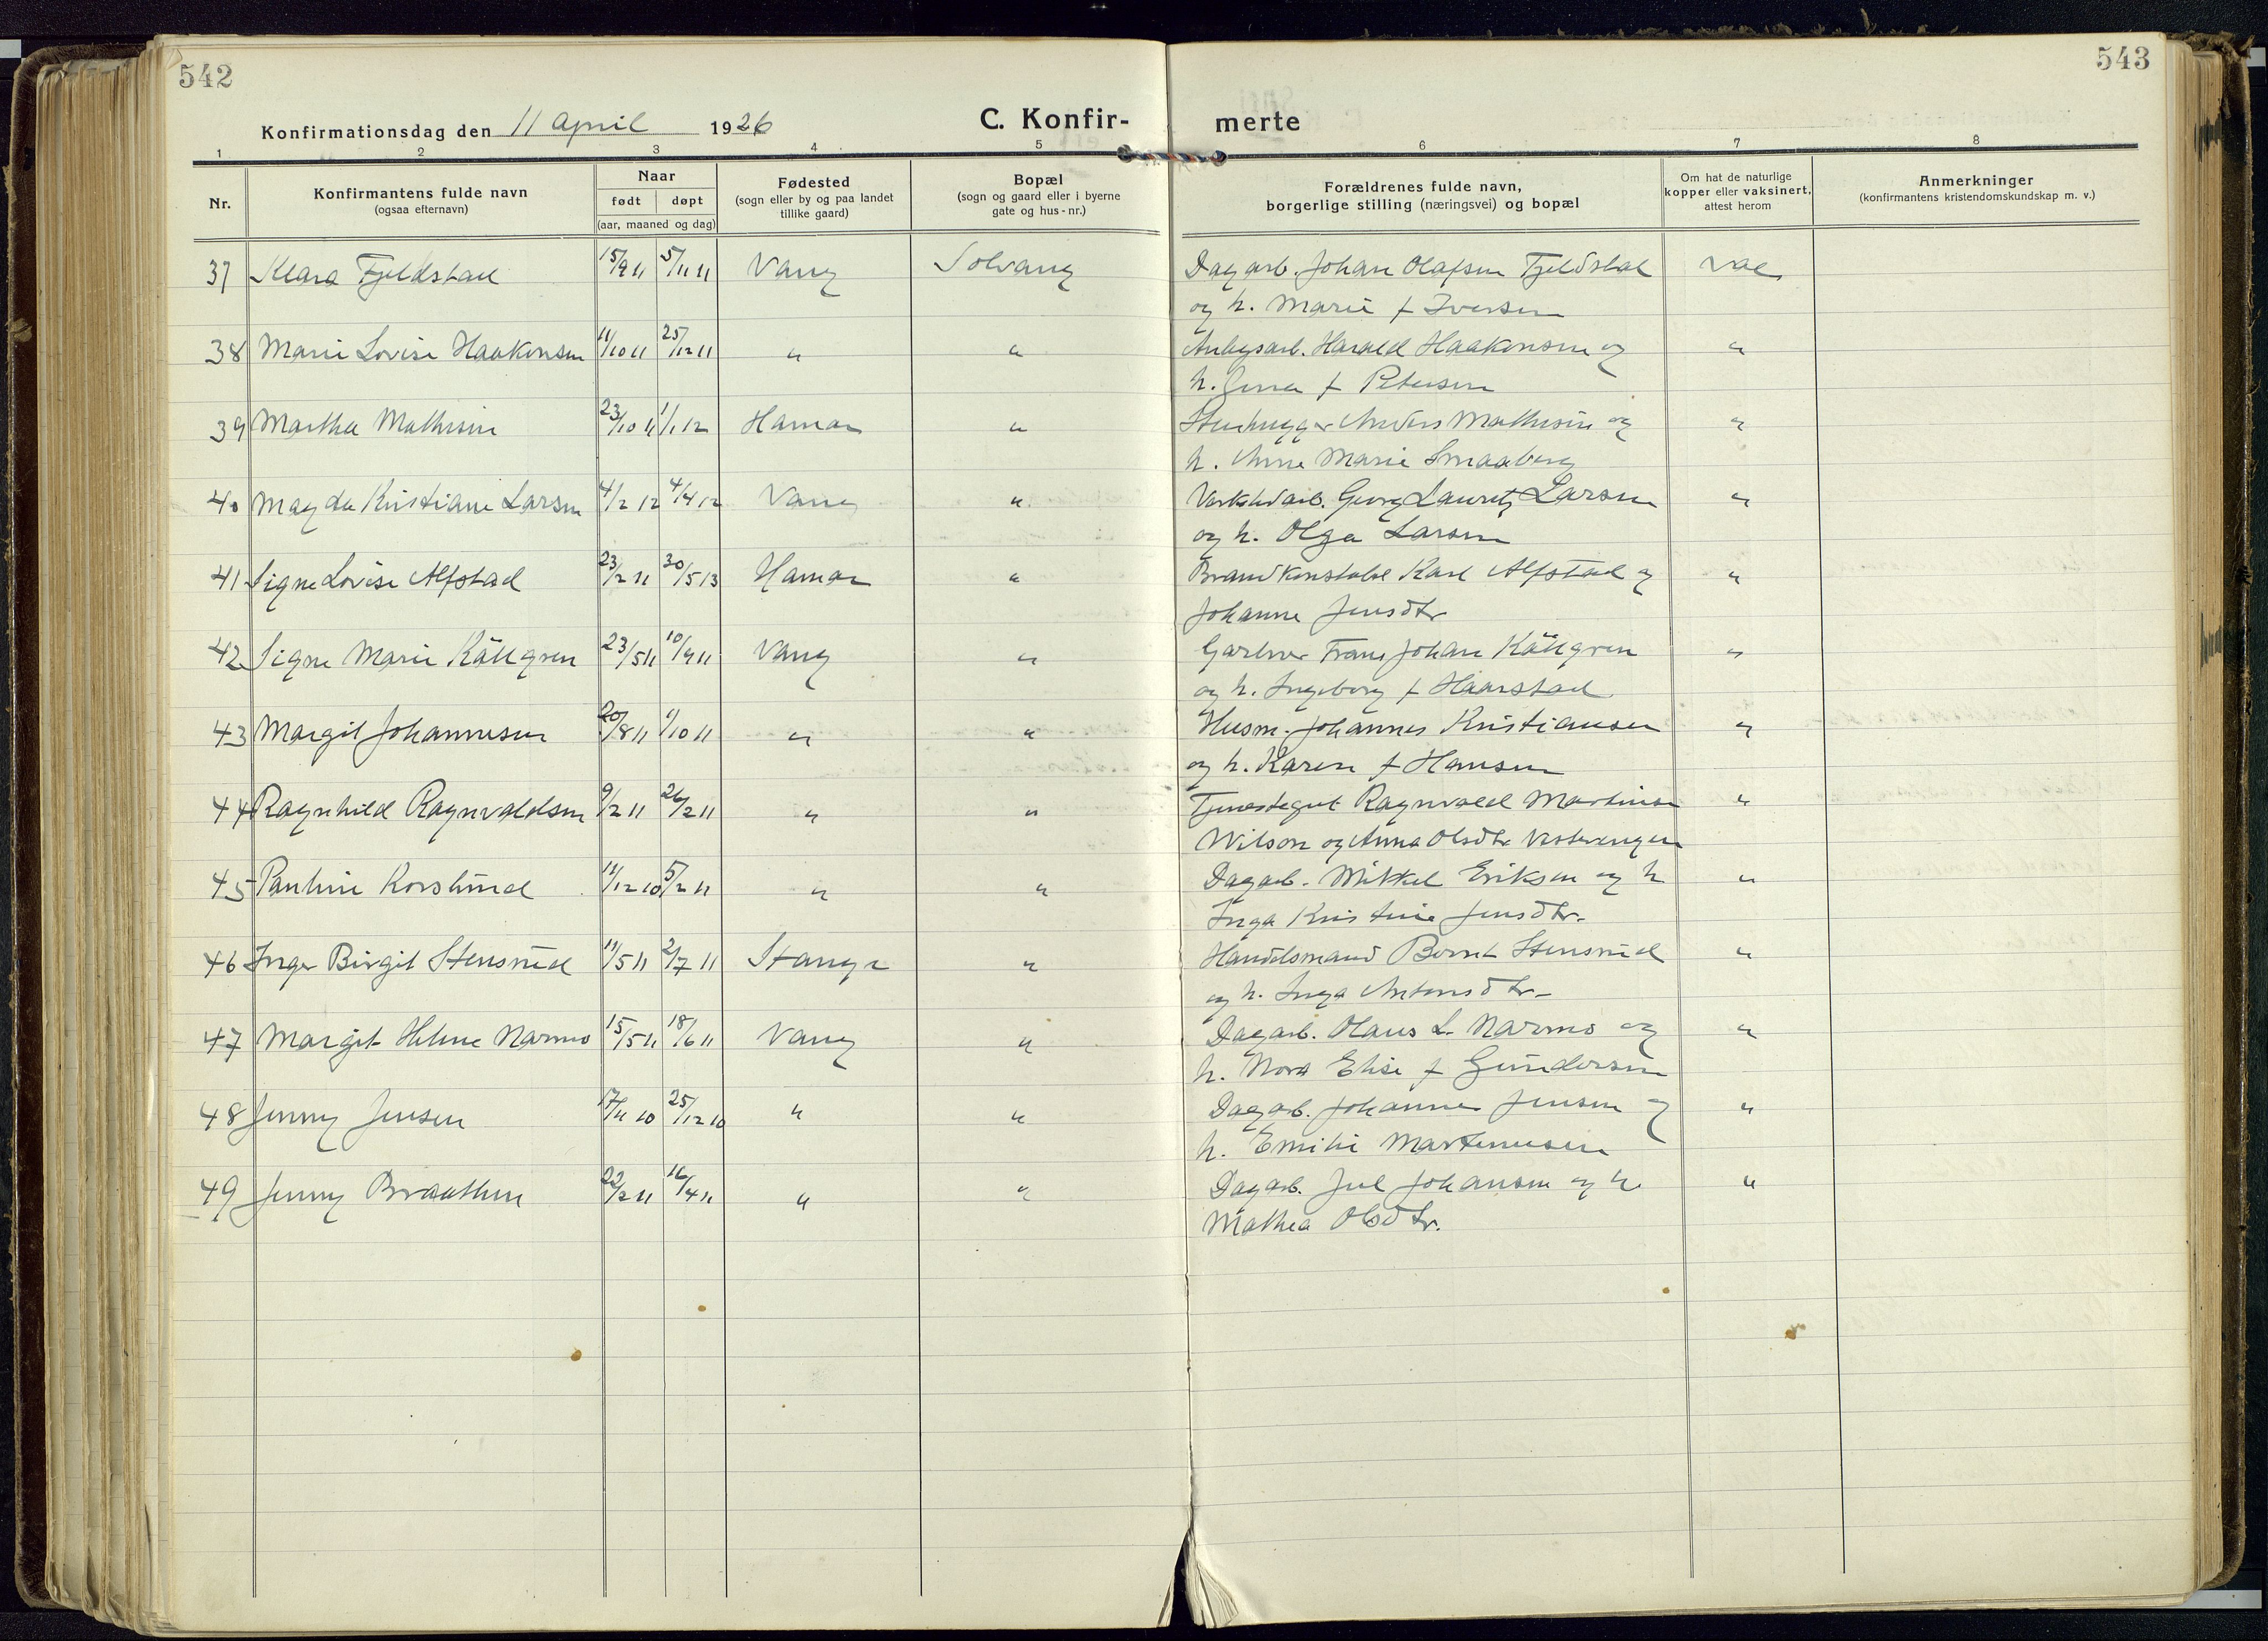 542
543
Konfirmationsdag den 11 april 1926
C. Konfir-
merte
1 2 3 4 5 6 7 8
Nr.
Konfirmantens fulde navn
(ogsaa efternavn)
Naar
født døpt
(aar, maaned og dag)
Fødested
(sogn eller by og paa landet
tillike gaard)
Bopæl
(sogn og gaard eller i byerne
gate og hus-nr.)
Forældrenes fulde navn,
borgerlige stilling (næringsvei) og bopæl
Om hat de naturlige
kopper eller vaksinert,
attest herom
Anmerkninger
(konfirmantens kristendomskundskap m. v.)
37 Klara Fjeldstad 15/9 11 5/11 11 Vang Solvang Dagarb. Johan Olafsen Fjeldstad vac
og h. Marie f Iversen
38 Marie Lovise Haakensen 11/10 11 25/12 11 " " Anlegsarb. Harald Haakensen og "
h. Jenna f Petersen
39 Martha Mathisen 23/10 11 1/1 12 Hamar " Stenhugger Anders Mathisen og "
h. Anne Marie Smaaberg
40 Magda Kristiane Larsen 4/2 12 4/4 12 Vang " Verkstedarb. Georg Lauritz Larsen "
og h. Olga Larsen
41 Signe Lovise Alfstad 23/2 11 30/5 13 Hamar " Brandkonstabel Karl Alfstad og "
Johanne Jensdtr
42 Signe Marie Källgren 23/5 11 10/9 11 Vang " Gartner Frans Johan Källgren "
og h. Ingeborg f Haarstad
43 Margit Johannesen 20/8 11 1/10 11 " " Husm. Johannes Kristiansen "
og h. Karen f Hansen
44 Ragnhild Ragnvaldsen 9/2 11 26/2 11 " " Tjenestegut Ragnvald Martinsen "
Wilson og Anna Olsdtr Vestvengen
45 Pauline Korslund 11/12 10 5/2 11 " " Dagarb. Mikkel Eriksen og h "
Inga Kristine Jensdtr.
46 Inger Birgit Stensrud 11/5 11 2/7 11 Stange " Handelsmand Bernt Stensrud "
og h. Inga Antonsdtr.
47 Margit Helene Narmo 15/5 11 18/6 11 Vang " Dagarb. Olaus L. Narmo og "
h. Nora Elise f Gundersen
48 Jenny Jensen 17/11 10 25/12 10 " " Dagarb. Johannes Jensen og "
h. Emilie Martinusen
49 Jenny Braathen 22/2 11 16/4 11 " " Dagarb. Jul Johansen og h. "
Mathea Olsdtr.